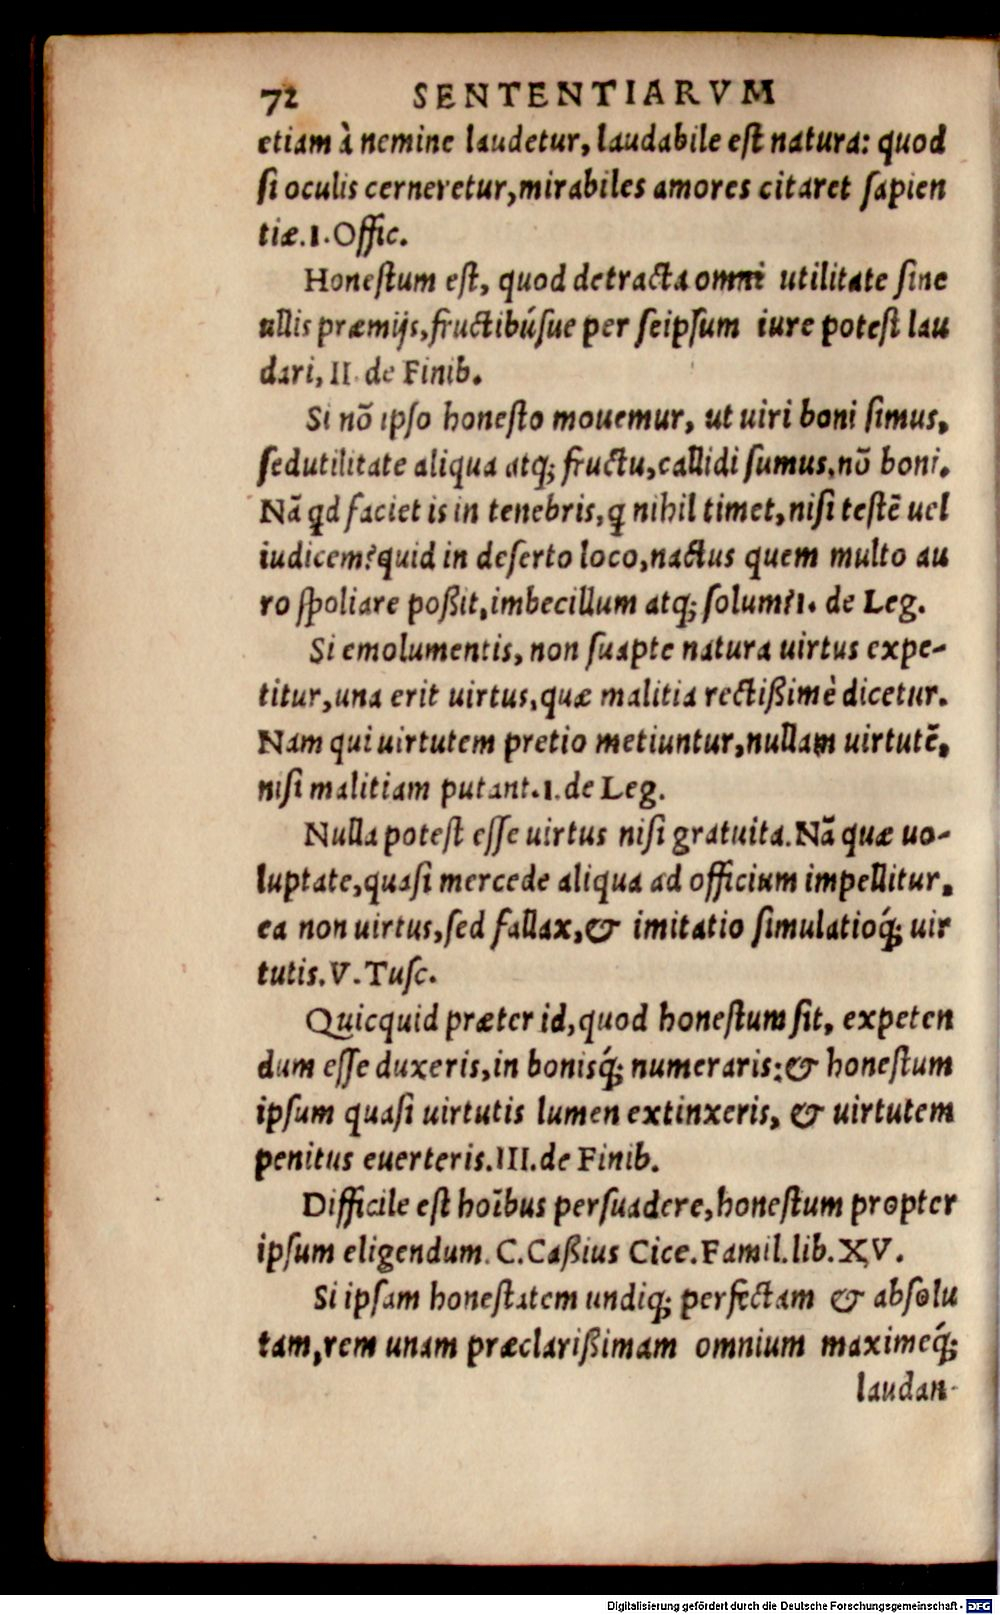 72 SENTENTIARVM
etiam à nemine laudetur, laudabile eſt natura: quod
ſi oculis cerneretur, mirabiles amores citaret ſapien
tiæ. I. Offic.
Honeſtum eſt, quod detracta omni utilitate ſine
ullis præmijs, fructibúſue per ſeipſum iure poteſt lau
dari, II. de Finib.
Si nō ipſo honeſto mouemur, ut uiri boni ſimus,
ſed utilitate aliqua atq; fructu, callidi ſumus, nō boni.
Nā qd faciet is in tenebris, q nihil timet, niſi teſtē uel
iudicem? quid in deſerto loco, nactus quem multo au
ro ſpoliare poßit, imbecillum atq; ſolum? I. de Leg.
Si emolumentis, non ſuapte natura uirtus expe-
titur, una erit uirtus, quæ malitia rectißimè dicetur.
Nam qui uirtutem pretio metiuntur, nullam uirtutē,
niſi malitiam putant. I. de Leg.
Nulla poteſt eſſe uirtus niſi gratuita. Nā quæ uo-
luptate, quaſi mercede aliqua ad officium impellitur,
ea non uirtus, ſed fallax, & imitatio ſimulatioq́; uir
tutis. V. Tuſc.
Quicquid præter id, quod honeſtum ſit, expeten
dum eſſe duxeris, in bonisq́; numeraris: & honeſtum
ipſum quaſi uirtutis lumen extinxeris, & uirtutem
penitus euerteris. III. de Finib.
Difficile eſt hoībus perſuadere, honeſtum propter
ipſum eligendum. C. Caßius Cice. Famil. lib. XV.
Si ipſam honeſtatem undiq; perfectam & abſolu
tam, rem unam præclarißimam omnium maximeq́;
laudan-
Digitalisierung gefördert durch die Deutsche Forschungsgemeinschaft - DFG